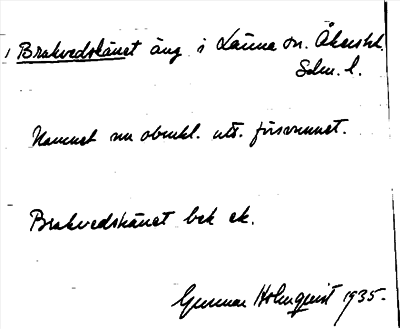 Brakvedskänet äng i Länna sn. Åkersbh.
Sdm. l.
Namnet nu obrukl. utt. försvunnet.
Brakvedskänet bek ek.
Gunnar Holmqvist 1935.